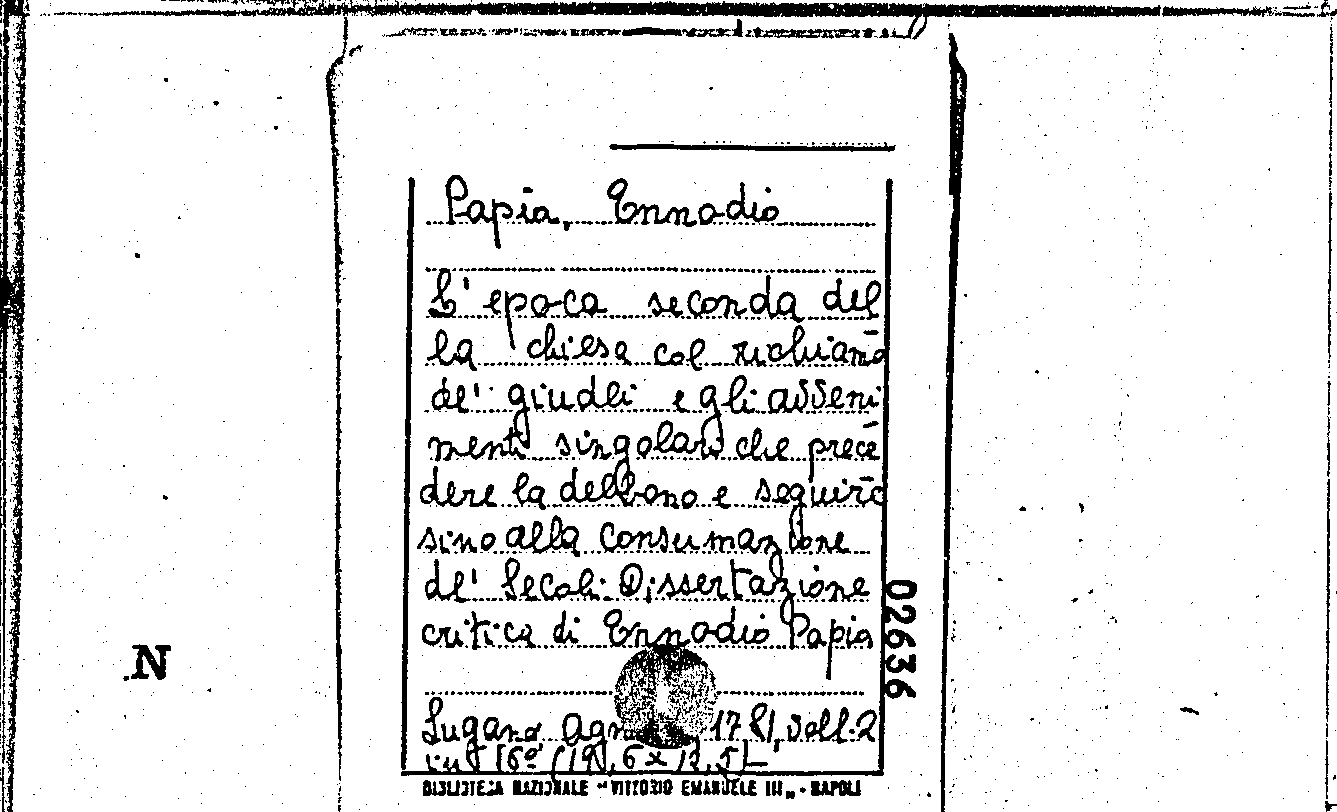 Papia, Ennodio
L'epoca seconda del
la chiesa col richiamo
de' giudei e gli avveni
menti singolari che prece
dere la debbono e seguire
sino alla consumazione
de' Secoli. Dissertazione
critica di Ennodio Papia
02636
N
Lugano, 1781, voll. 2
in 16° (19,6 x 13,5)
BIBLIOTECA NAZIONALE "VITTORIO EMANUELE III" - NAPOLI